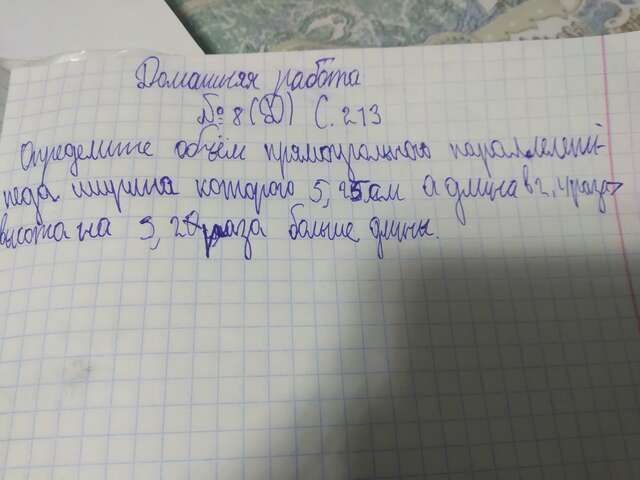 Домашняя работа
№ 8 (Ю) С. 213
Определите объём прямоугольного параллелепи-
педа ширина которого 5,25 см а длина в 2,4 раза >
высота на 3,2 раза больше длины.